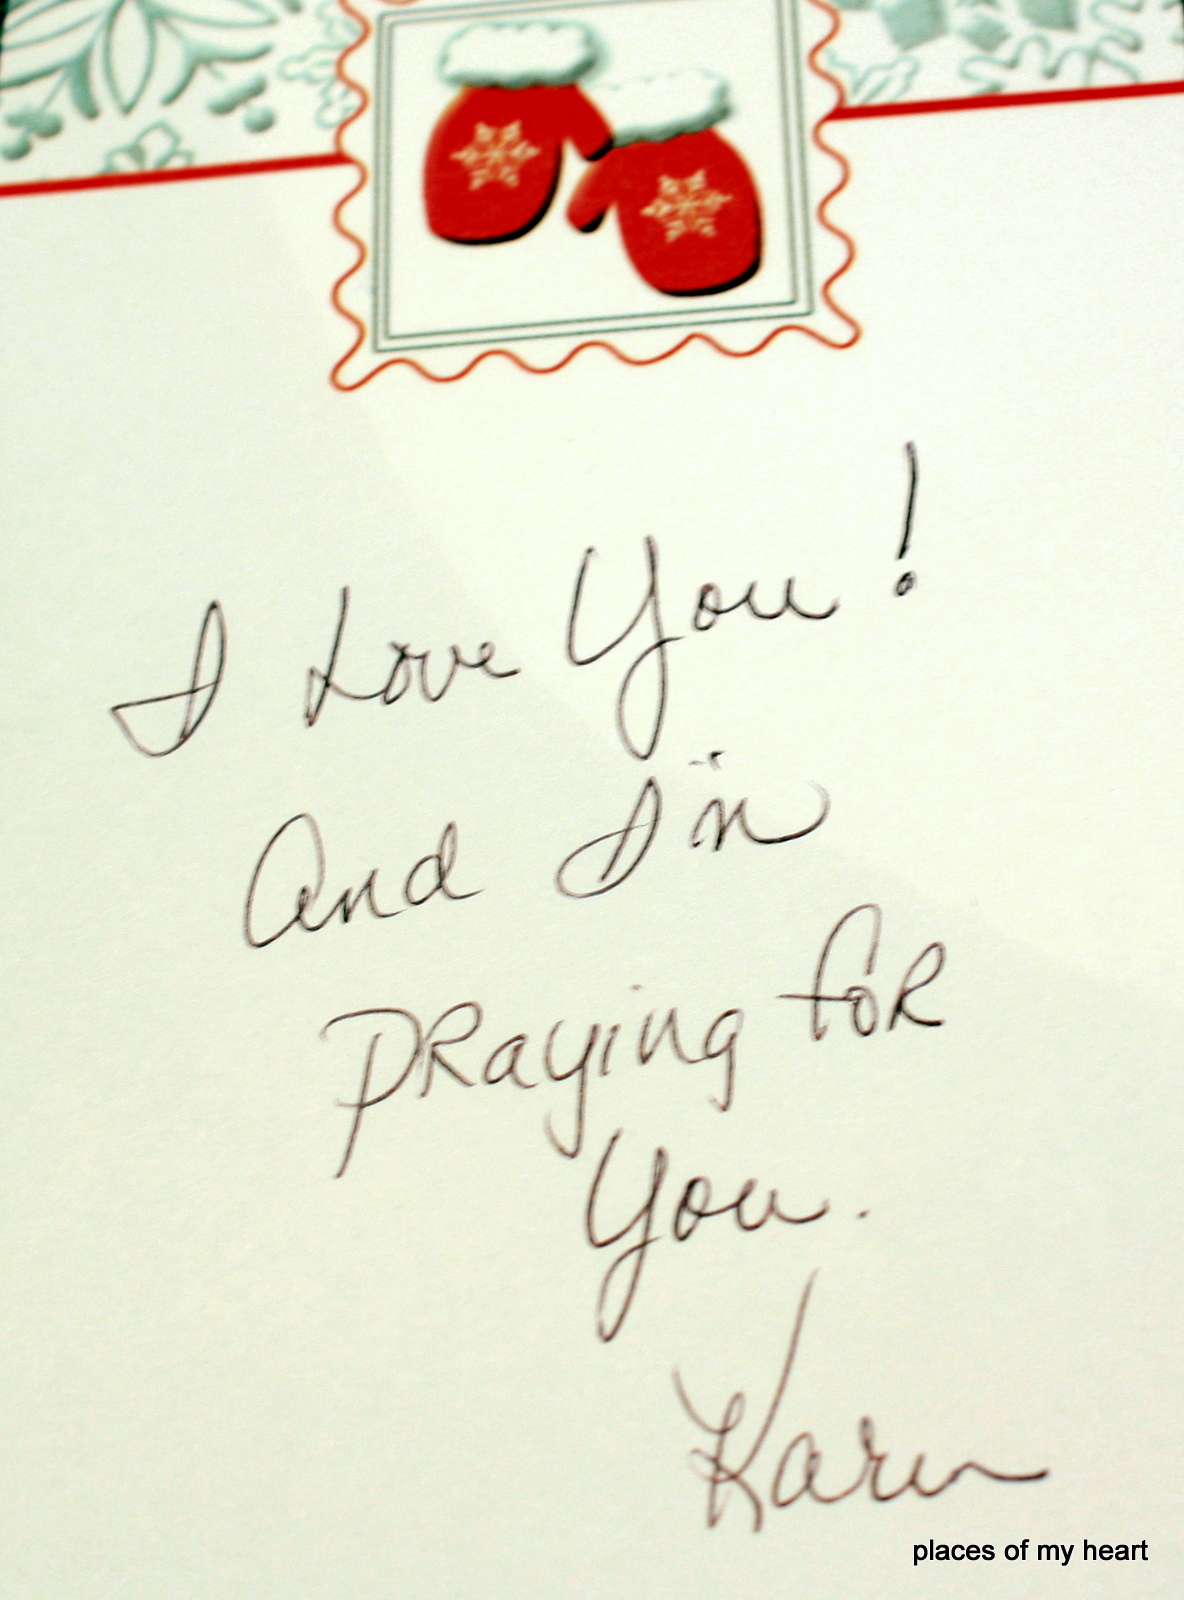 I Love You!
And I'm
PRaying foR
You.
Karen
places of my heart